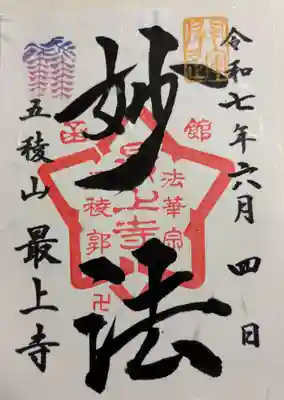 令和七年六月四日
妙法
函館
法華宗
最上寺
五稜郭
卍
五稜山 最上寺